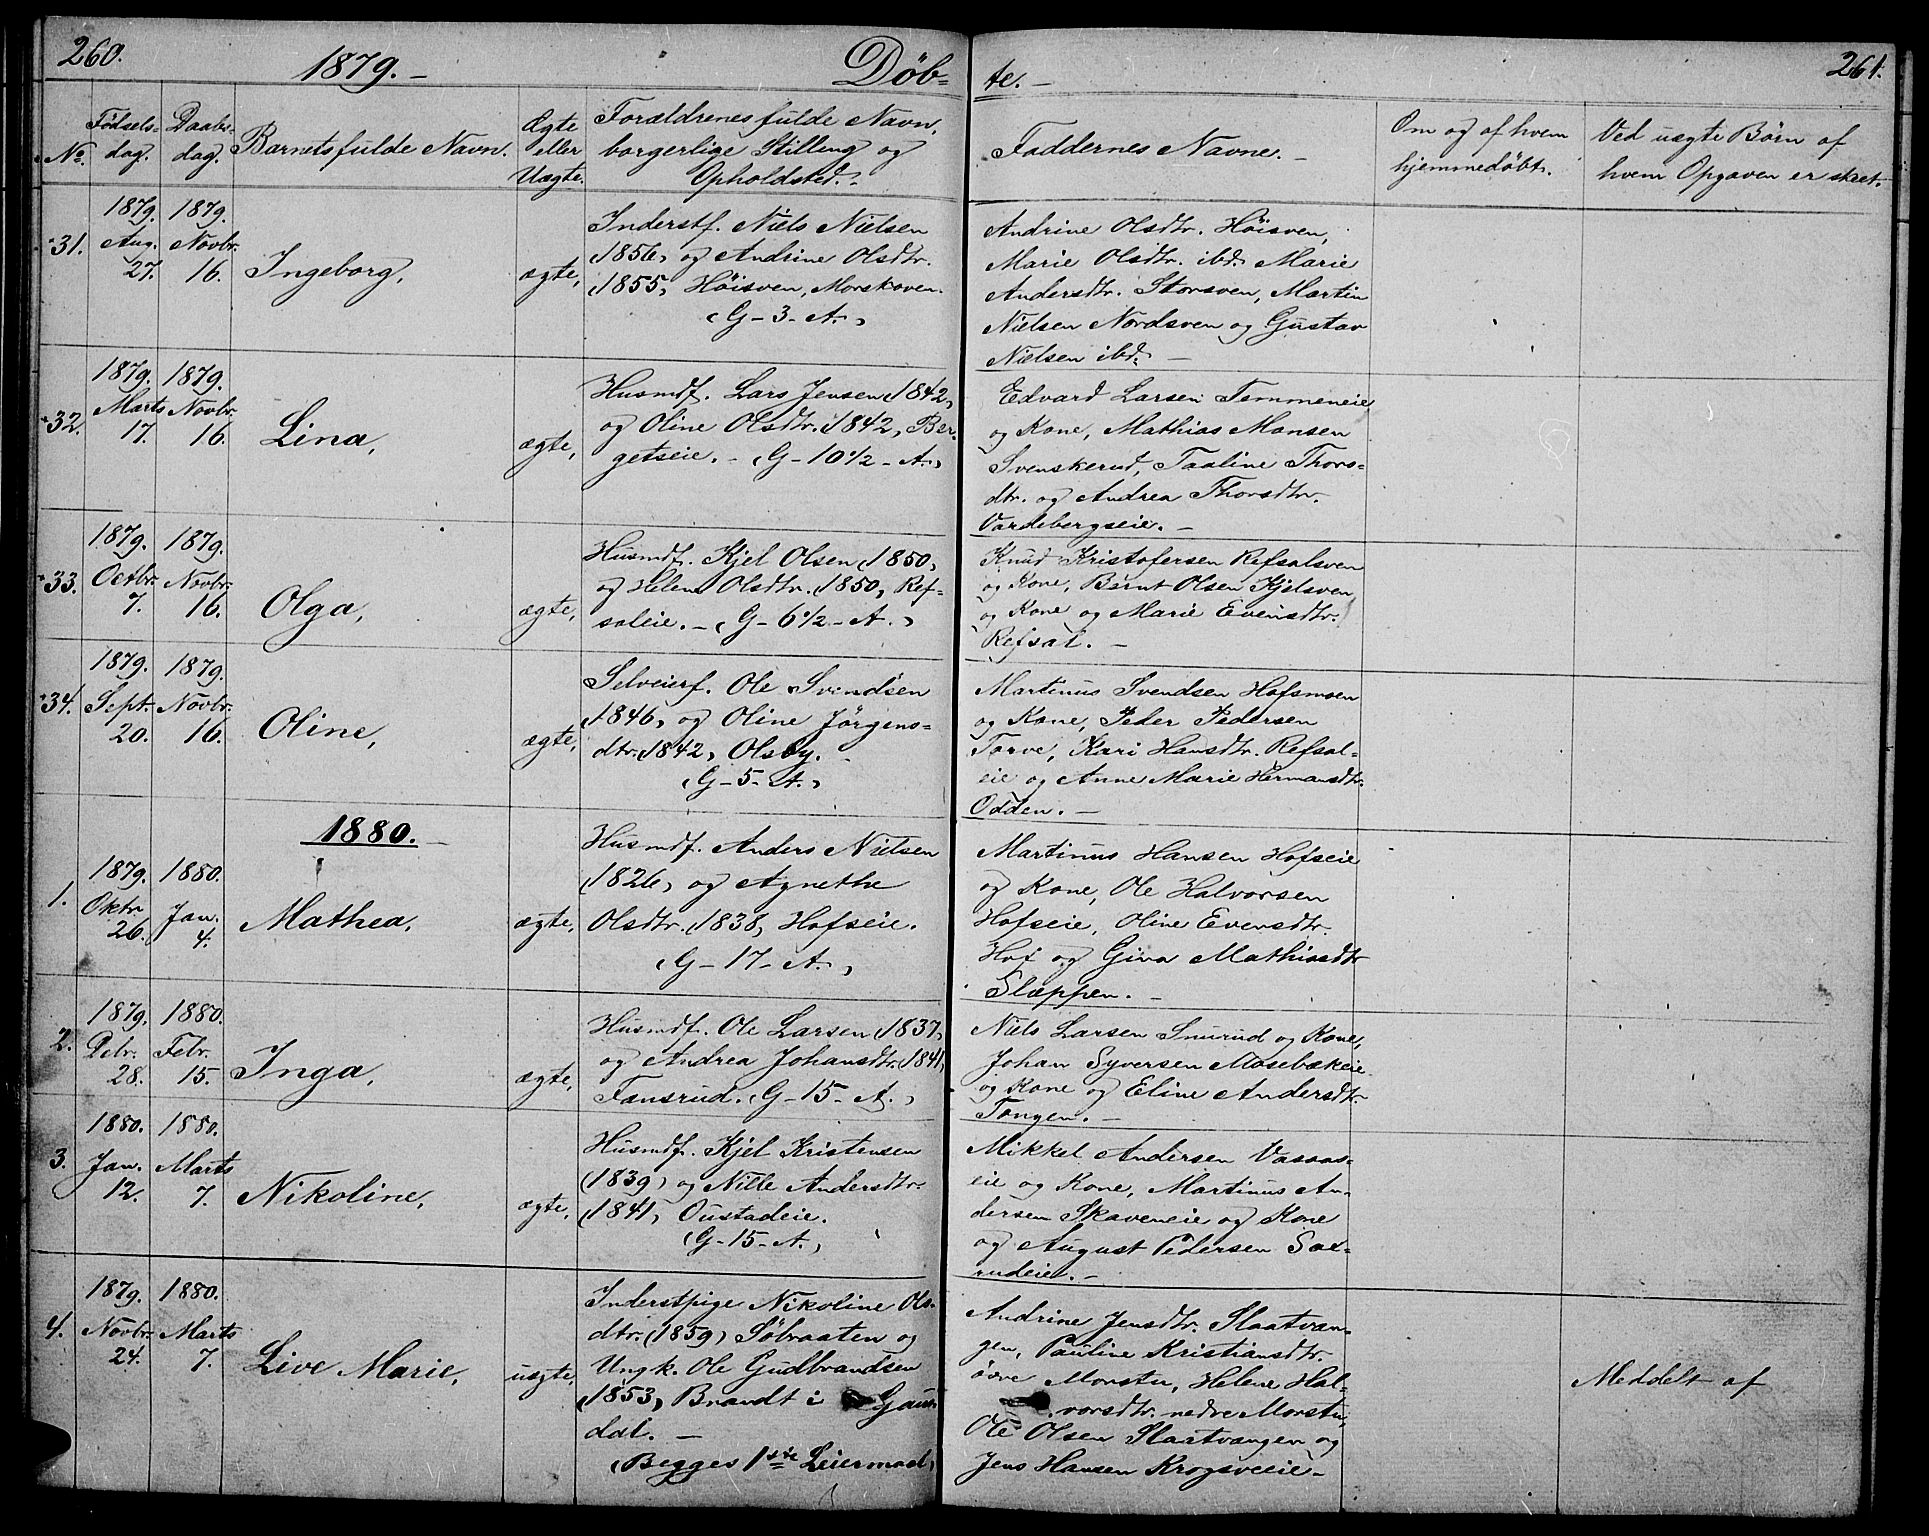 260.
1879.-
Døb-
No.
Fødsels-
dag.
Daabs-
dag.
Barnets fulde Navn.
Ægte
eller
Uægte.
Forældrenes fulde Navn,
borgerlige Stilling og
Opholdsted.-
31.
1879.
Aug.
27.
1879.
Novbr.
16.
Ingeborg,
ægte,
Inderstf. Niels Nielsen
(1856) og Andrine Olsdtr.
(1855) Höisven, Morskoven.
(G-3-A.)
32.
1879.
Marts
17.
1879.
Novbr.
16.
Lina,
ægte,
Husmdf. Lars Jensen (1842)
og Oline Olsdtr. (1842) Ber-
getseie. - (G-10½-A.)
33.
1879.
Octbr.
7.
1879.
Novbr.
16.
Olga,
ægte,
Husmdf. Kjel Olsen (1850)
og Helene Olsdtr. (1850) Ref-
saleie. - (G-6½-A.)
34.
1879.
Sept.
20.
1879.
Novbr.
16.
Oline,
ægte,
Selveierf. Ole Svendsen
(1846) og Oline Jørgens-
dtr. (1842) Olsby. -
(G-5-A.)
1880.
1.
1879.
Oktr.
26.
1880.
Jan.
4.
Mathea,
ægte,
Husmdf. Anders Nielsen
(1826) og Agnethe
Olsdtr. (1838) Hofseie.
(G-17-A.)
2.
1879.
Debr.
28.
1880.
Febr.
15.
Inga,
ægte,
Husmdf. Ole Larsen (1837)
og Andrea Johansdtr. (1841)
Fansrud. (G-15-A.)
3.
1880.
Jan.
12.
1880.
Marts
7.
Nikoline,
ægte,
Husmdf. Kjel Kristensen
(1839) og Nille Andersdtr.
(1841) Oustadeie.
(G-15-A.)
4.
1879.
Novbr.
24.
1880.
Marts
7.
Live Marie,
uægte,
Inderstpige Nikoline Ols-
dtr. (1859) Söbraaten og
Ungk. Ole Gudbrandsen
(1853) Brandt i Gaus-
dal. -
(Begges 1ste Leiermaal)
261.
te.-
Faddernes Navne.-
Om og af hvem
hjemmedøbt.
Ved uægte Børn af
hvem Opgaven er skeet.
Andrine Olsdtr. Höisven,
Marie Olsdtr. ibd. Marie
Andersdtr. Storsven, Martin
Nielsen Nordsven og Gustav
Nielsen ibd. -
Edvard Larsen Temmeneie
og Kone, Mathias Monsen
Svenskerud, Taaline Thors-
dtr. og Andrea Thorsdtr.
Vardebergseie. -
Knud Kristofersen Refsalsven
og Kone, Bernt Olsen Kjelsven
og Kone og Marie Evensdtr.
Refsal. -
Martinus Svendsen Hofsmoen
og Kone, Peder Pedersen
Torve, Kari Hansdtr. Refsal-
eie og Anne Marie Hermansdtr.
Odden. -
Martinus Hansen Hofseie
og Kone, Ole Halvorsen
Hofseie, Oline Evensdtr.
Hof og Gina Mathiasdtr
Slæppen. -
Niels Larsen Snurud og Kone,
Johan Syversen Mosebækeie
og Kone og Eline Andersdtr.
Tangen. -
Mikkel Andersen Vasaas-
eie og Kone, Martinus An-
dersen Skaveneie og Kone
og August Pedersen Sax-
rudeie. -
Andrine Jensdtr. Slaatvan-
gen, Pauline Kristiansdtr.
övre Morstu, Helene Hal-
vorsdtr. nedre Morstu,
Ole Olsen Slaatvangen og
Jens Hansen Krogsveeie-
Meddelt af